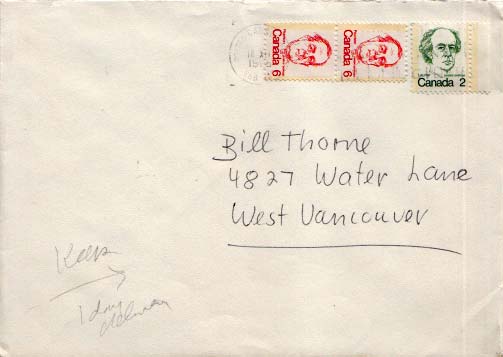 Canada 6
Canada 6
Canada 2
Bill Thorne
4827 Water Lane
West Vancouver
Keep
1 day